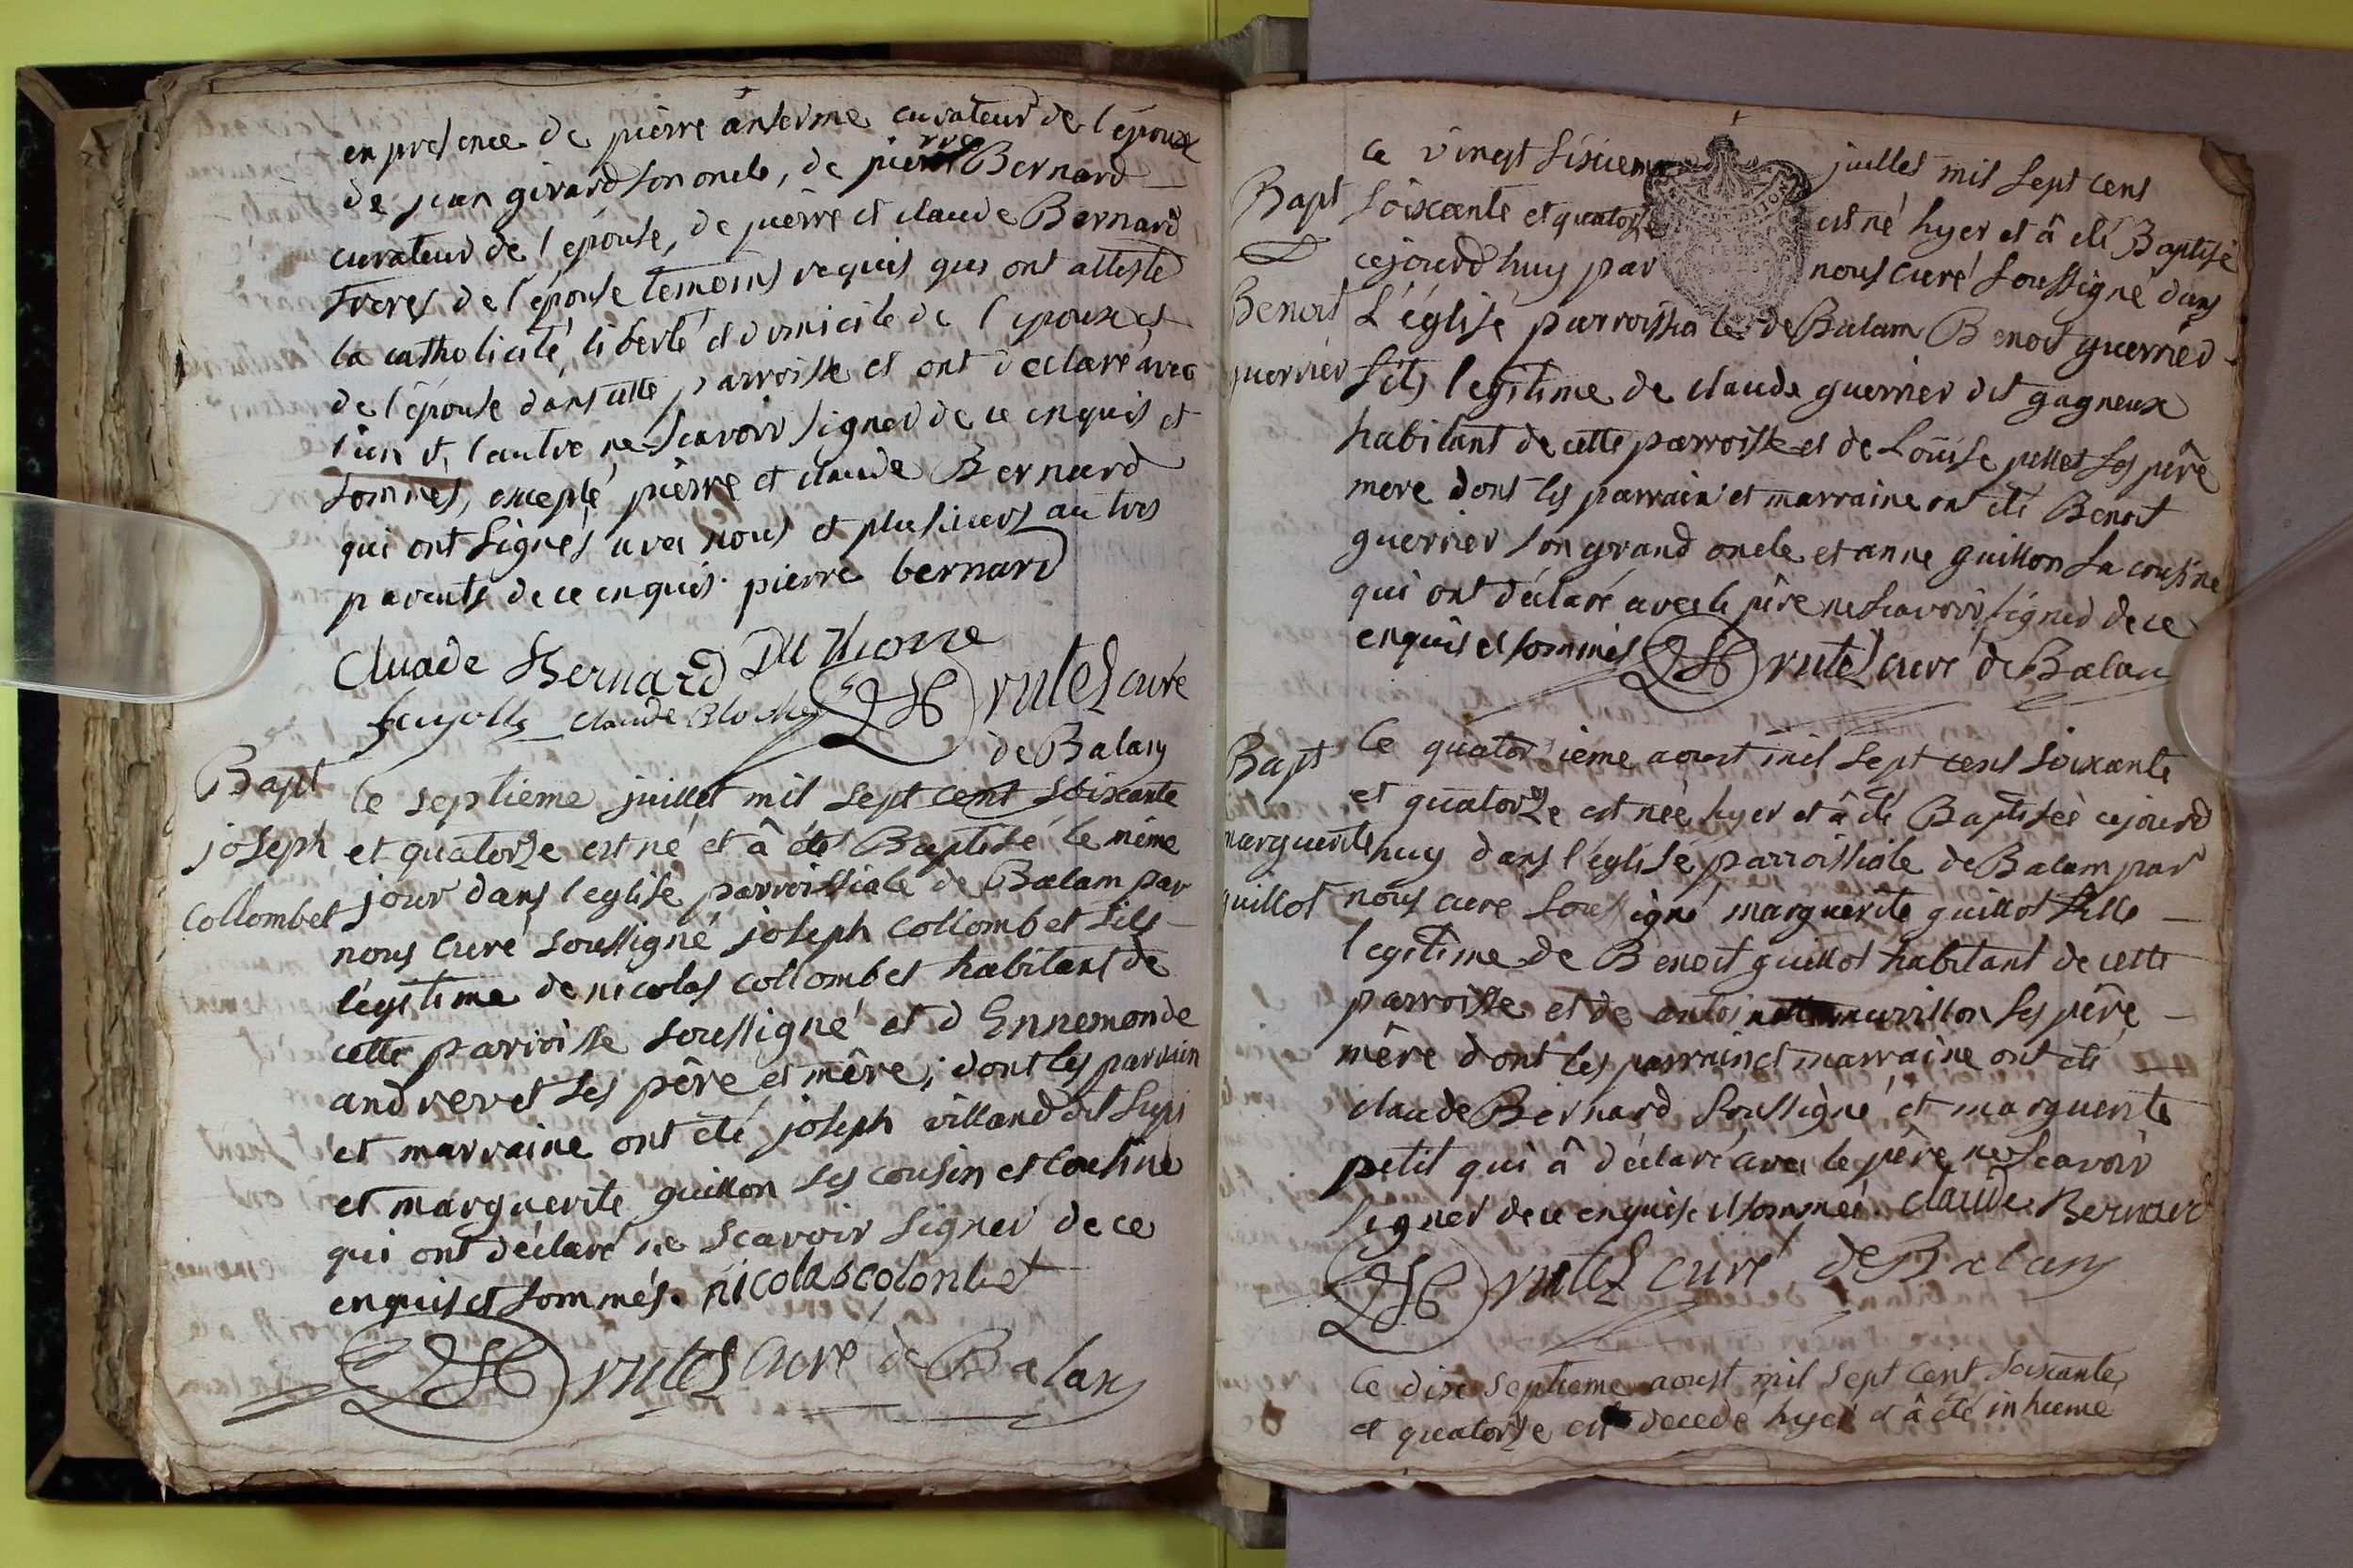 en presence de pierre anserme curateur de l'époux
de jean girard son oncle, de pierre Bernard
curateur de l'épouse, de pierre et claude Bernard
freres de l'épouse temoins requis qui ont attesté
la catholicité, liberté et domicile de l'époux et
de l'épouse dans cette parroisse et ont declaré avec
l'un et l'autre ne scavoir signer de ce enquis et
sommés, excepté pierre et claude Bernard
qui ont signés avec nous et plusieurs autres
parents de ce enquis. pierre bernard
Cluade Bernard
fayolle claude
rutel curé
de Balan
Bapt
joseph
Collombet
le septieme juillet mil sept cent soixante
et quatorze est né et â été Baptisé le même
jour dans l'eglise parroissiale de Balam par
nous curé soussigné joseph collombet fils
légitime de nicolas collombet habitant de
cette parroisse soussigné et d'Ennemonde
andrevet ses pêre et mêre; dont les parrain
et marraine ont été joseph villand dit
et marguerite guillon ses cousin et cousine
qui ont déclaré ne scavoir signer de ce
enquis et sommés. nicolas colombet
rutel curé de Balan
Bapt
Benoit
guerrier
ce vingt sixieme juillet mil sept cens
soixante et quatorze est né hyer et â été Baptisé
cejourdhuy par nous curé soussigné dans
L'église parroissiale de Balam Benoit guerrier
fils legitime de claude guerrier dit gagneux
habitant de cette parroisse et de Loüise pellet ses pêre
mere dont les parrain et marraine ont été Benoit
guerrier son grand oncle et anne guillon sa cousine
qui ont déclaré avec le pêre ne scavoir signer de ce
enquis et sommés rutel curé de Balan
Bapt
marguerite
guillot
le quatorzieme aoust mil sept cens soixante
et quatorze est née hyer et â été Baptisée cejourd
huy dans l'église parroissiale de Balam par
nous curé soussigné marguerite guillot fille
legitime de Benoit guillot habitant de cette
parroisse et de antoinette murillon ses pêre
mêre dont les parrain et marraine ont été
claude Bernard soussigné et marguerite
petit qui â déclaré avec le pêre ne scavoir
signer de ce enquise et sommée. claude Bernard
rutel curé de Balan
le dix septieme aoust mil sept cent soixante
et quatorze est decedé hyer et â été inhumé